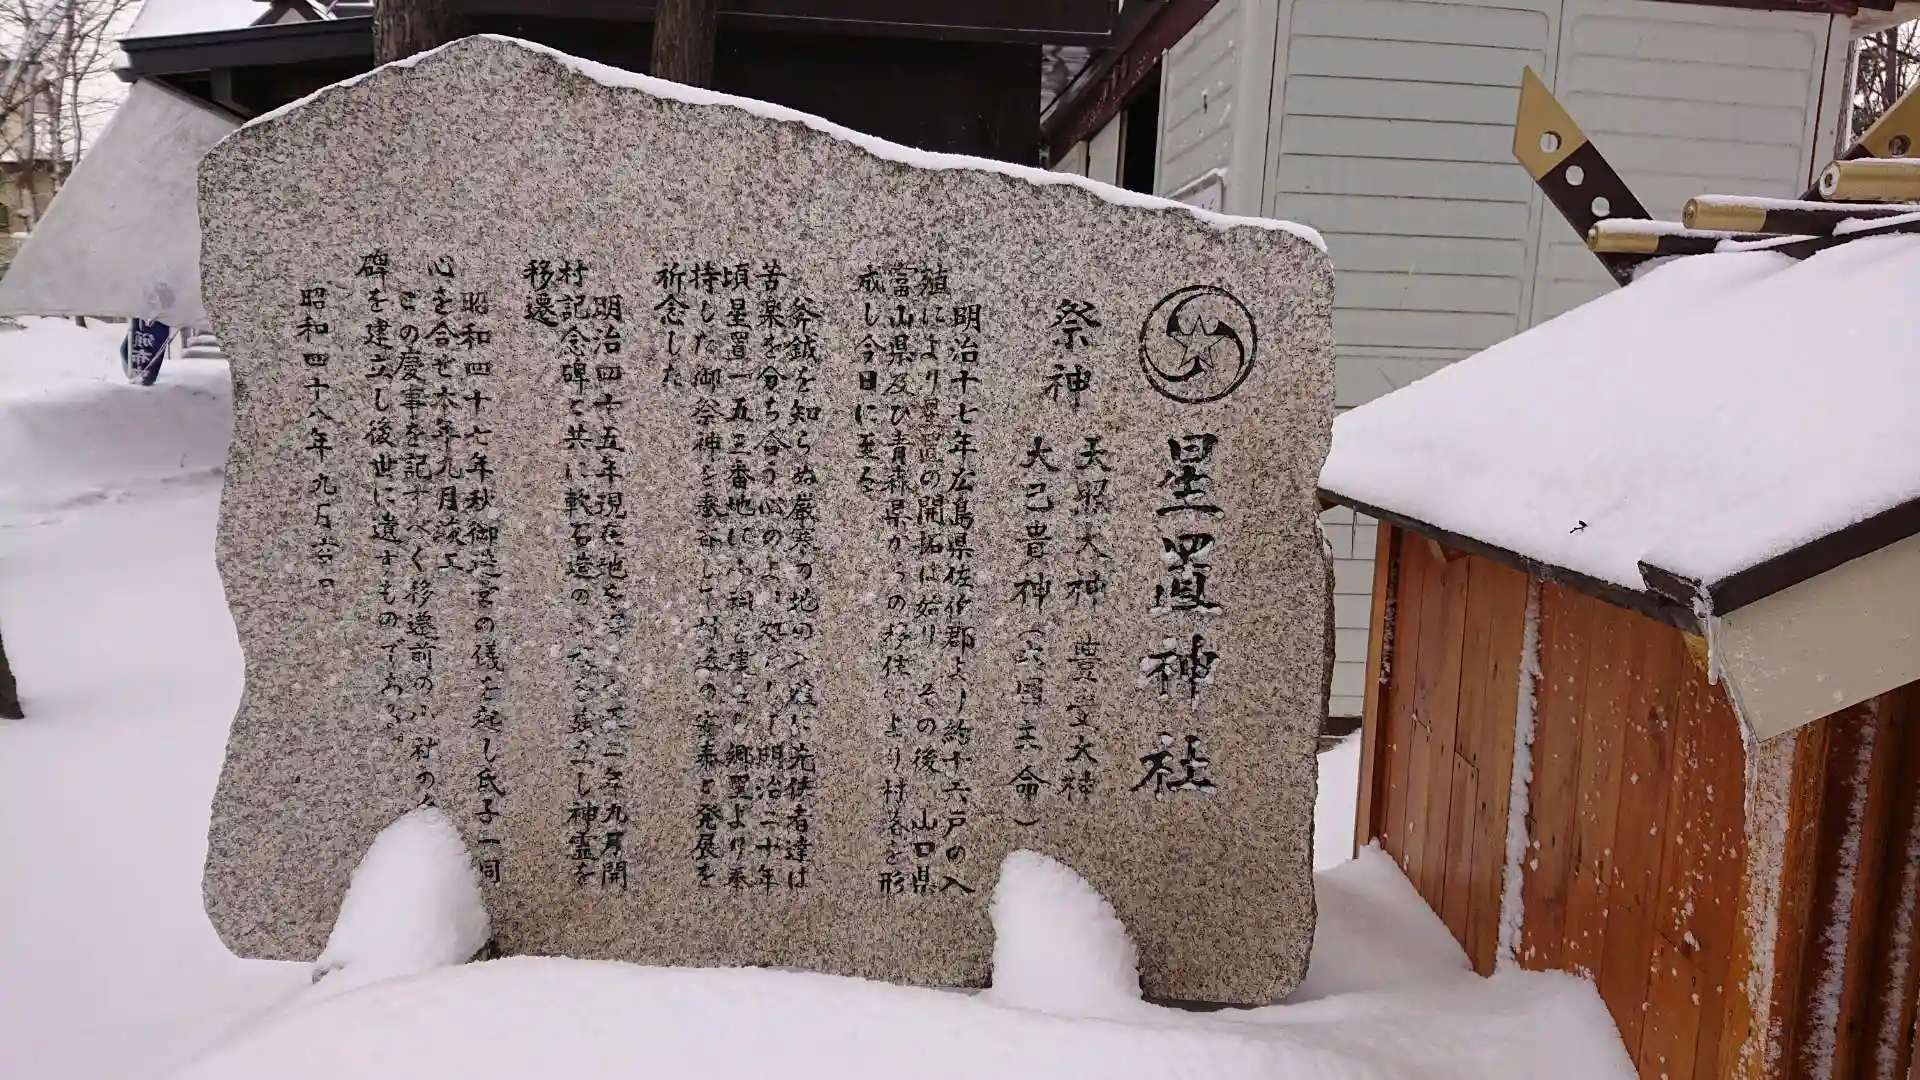 星置神社
祭神 天照大神 豊受大神
大己貴神(大国主命)
明治十七年広島県佐伯郡より約十六戸の入
殖により星置の開拓は始り、その後、山口県
富山県及び青森県からの移住により村落を形
成し今日に至る
斧鉞を知らぬ厳寒の地の入殖に先住者達は
苦楽を分ち合う心のよ 明治二十年
頃星置一五三番地に小祠を建立し郷里より奉
持した御祭神を奉斎して村落の安泰と発展を
祈念した
明治四十五年現在地を 二年九月開
村記念碑と共に軟石造の し神霊を
移遷
昭和四十七年秋御造営の儀を起し氏子一同
心を合せ本年九月茨工
この慶事を記すべく移遷前の小社の
碑を建立し後世に遺すものである。
昭和四十八年九月 日
頒布